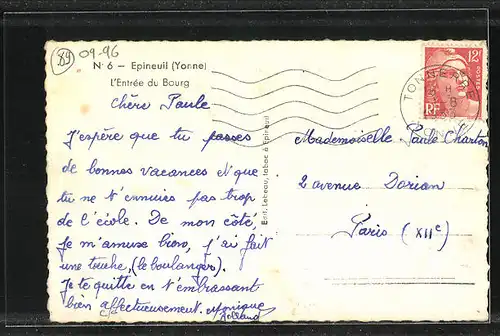 89
09-96
N° 6 — Epineuil (Yonne)
L'Entrée du Bourg
12F
POSTES
RF
TONNERRE
YONNE
Chère Paule
J'espère que tu passes
de bonnes vacances et que
tu ne t'ennuies pas trop
de l'école. De mon côté,
Je m'amuse bien, j'ai fait
une touche, (le boulanger).
Je te quitte en t'embrassant
bien affectueusement. Monique
Edit. Lebeau, tabac à Epineuil
Mademoiselle Paule Charton
2 avenue Dorian
Paris (XIIe)